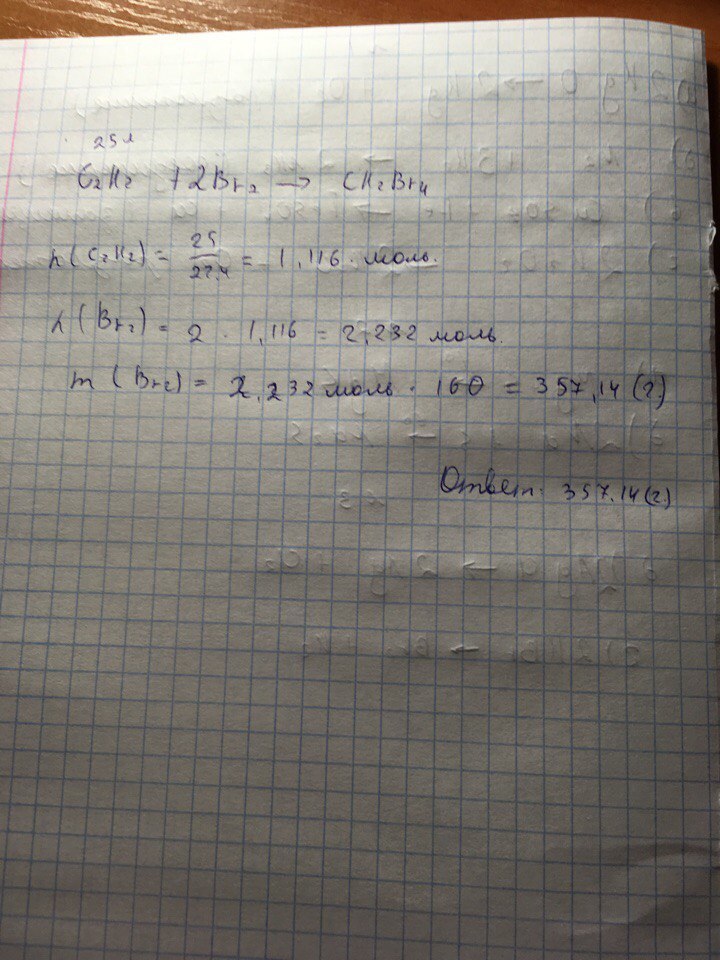 25 л
C₂H₂ + 2Br₂ → CH₂Br₄
n(C₂H₂) = 25/22,4 = 1,116 моль.
n(Br₂) = 2 · 1,116 = 2,232 моль.
m(Br₂) = 2,232 моль · 160 = 357,14 (г)
Ответ: 357,14 (г)